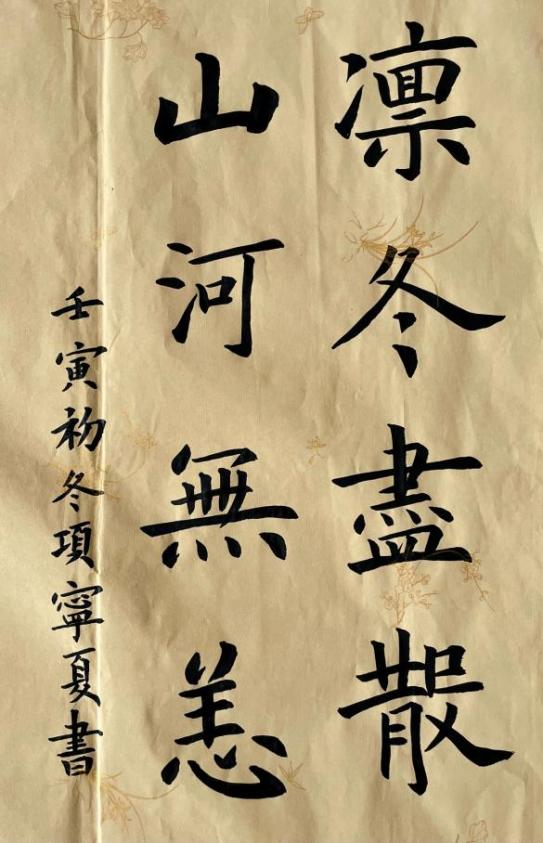 凛冬盡散
山河無恙
壬寅初冬項寧夏書